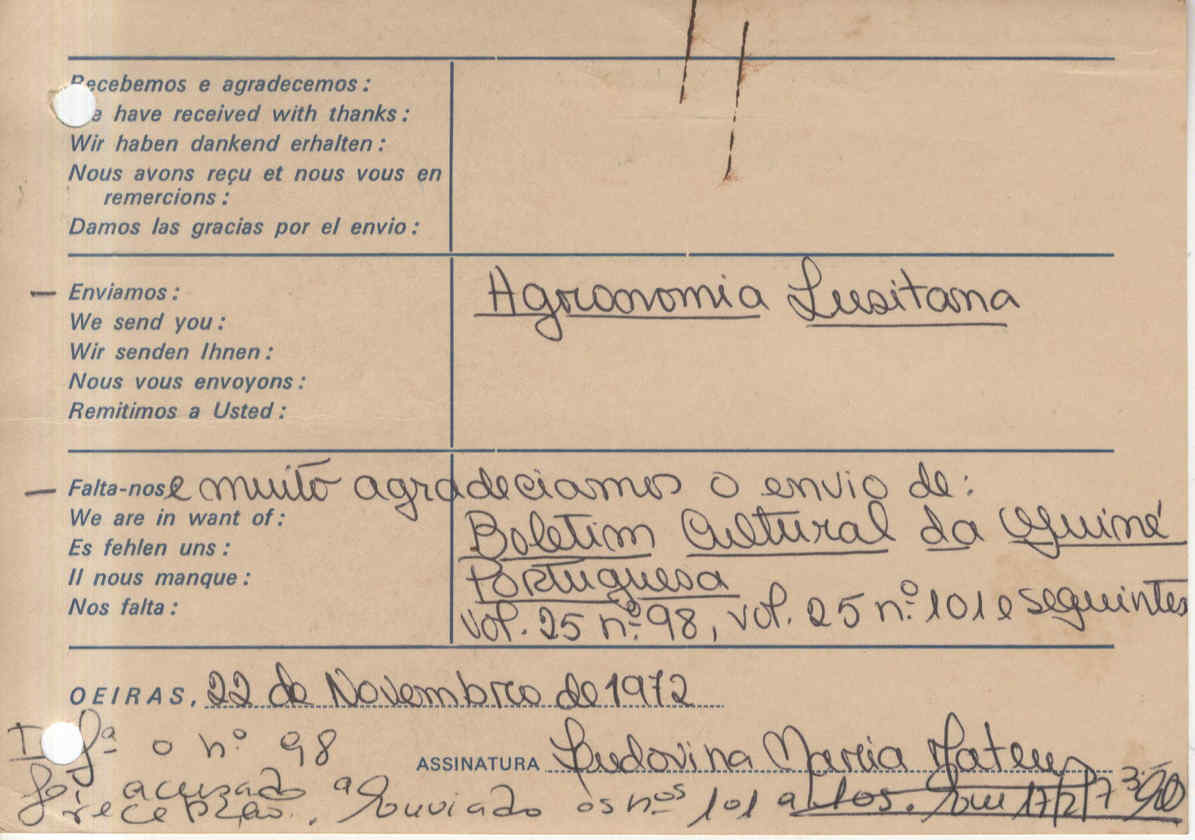 Recebemos e agradecemos:
We have received with thanks:
Wir haben dankend erhalten:
Nous avons reçu et nous vous en
remercions:
Damos las gracias por el envio:
Enviamos:
We send you:
Wir senden Ihnen:
Nous vous envoyons:
Remitimos a Usted:
Agronomia Lusitana
Falta-nos e muito agradeciamos o envio de:
We are in want of:
Es fehlen uns:
Il nous manque:
Nos falta:
Boletim Cultural da Guiné
Portuguesa
vol. 25 nº 98, vol. 25 nº 101 e seguintes
OEIRAS, 22 de Novembro de 1972
ASSINATURA Ludovina Maria Mateus
o nº 98
foi acusado a
recepção. os nos 101 a 17/2/73